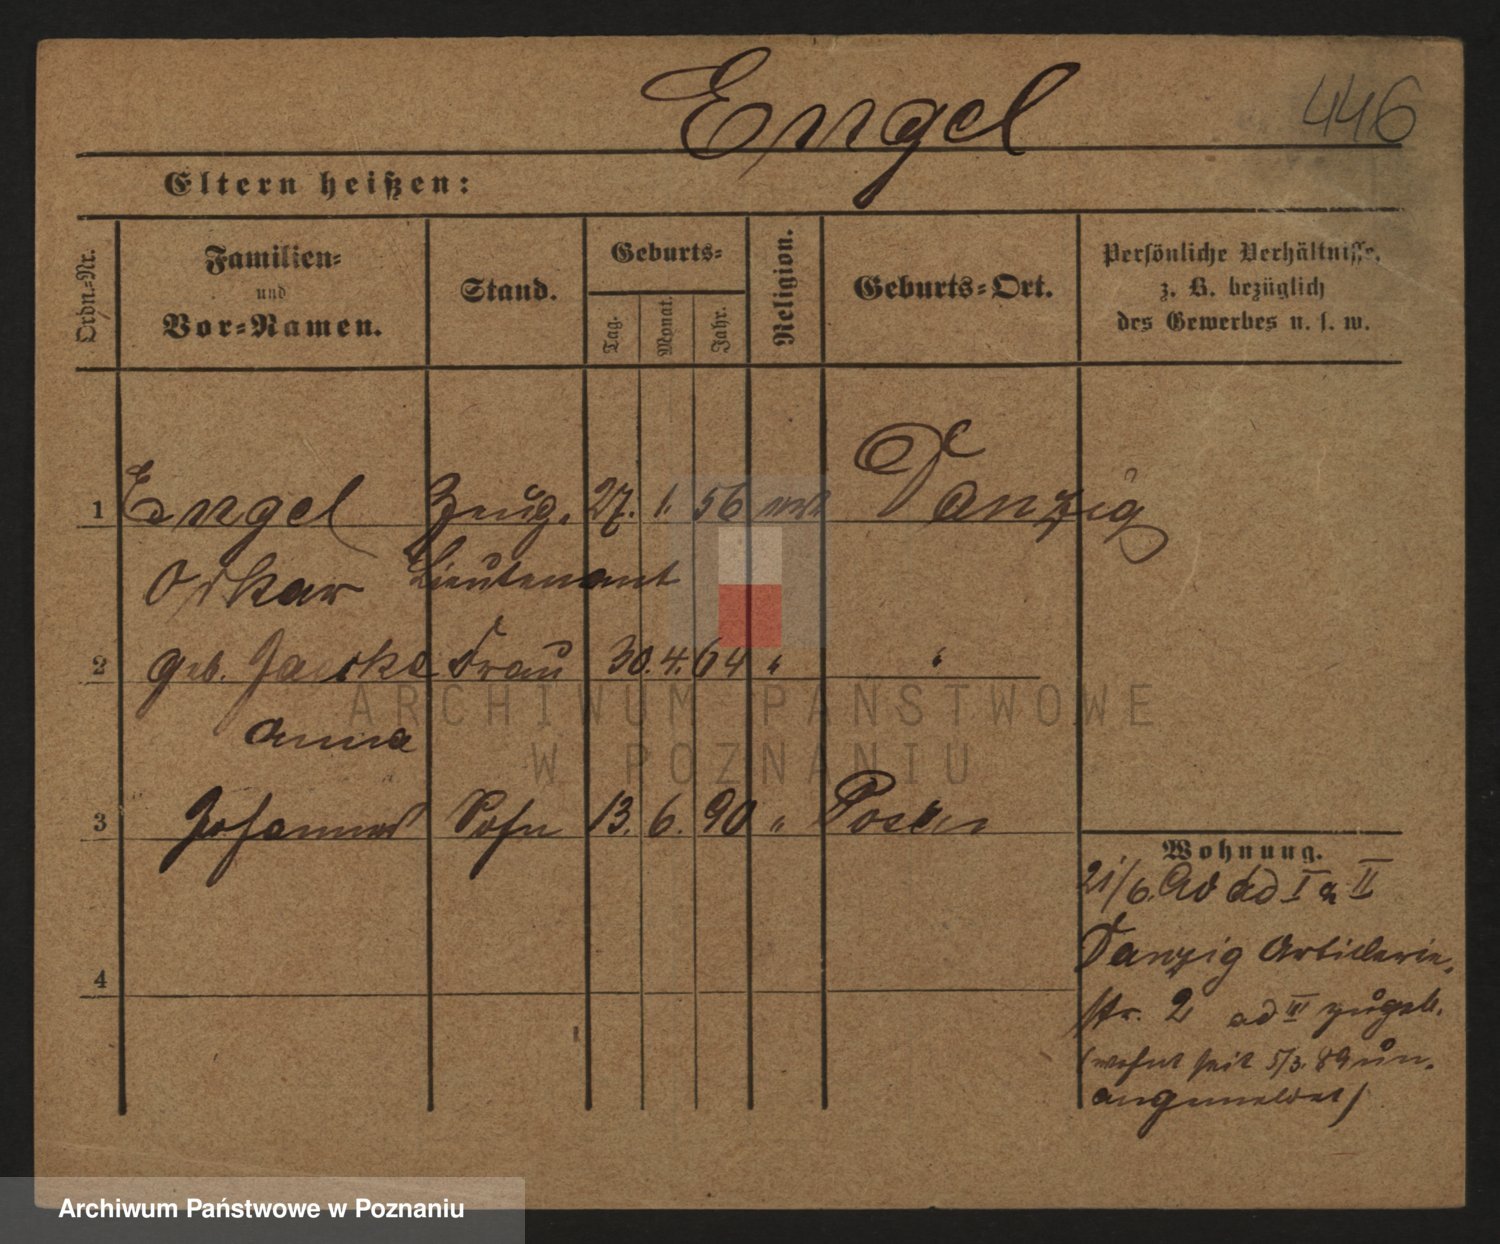 Engel
446
Eltern heißen:
Ordn.-Nr.
Familien-
und
Vor-Namen.
Stand.
Geburts-
Tag.
Monat.
Jahr.
Religion.
Geburts-Ort.
Persönliche Verhältnisse,
z. B. bezüglich
des Gewerbes u. s. w.
1 Engel Zeug. 27. 1. 56 Danzig
Oskar Lieutenant
2 geb. Frau 30. 4. 64 " "
Anna
3 Johannes Sohn 13. 6. 90 " Posen
4
Wohnung.
21/6. ad I & II
Danzig Artillerie-
str. 2 ad III zugeb.
(wohnt seit 5/3. 89 un-
angemeldet)
ARCHIWUM PAŃSTWOWE
W POZNANIU
Archiwum Państwowe w Poznaniu